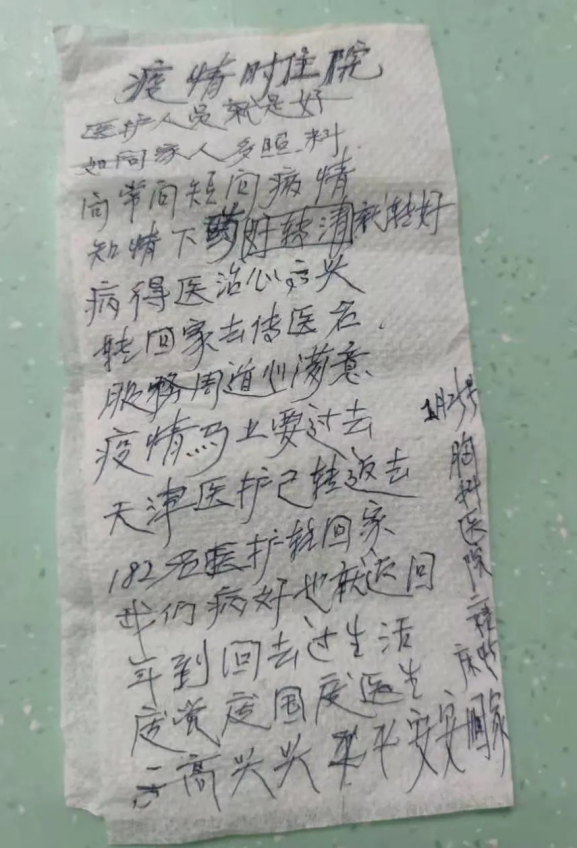 疫情时住院
医护人员就是好
如同家人多照料
问常问短问病情
知情下药好转清就转好
病得医治心高兴
转回家去传医名
服务周道心满意
疫情马上要过去
天津医护已转返去
182名医护转回家
我们病好也就返回
年到回去过生活
感党感国感医生
高兴兴 平安安回家
1月25号 胸科医院